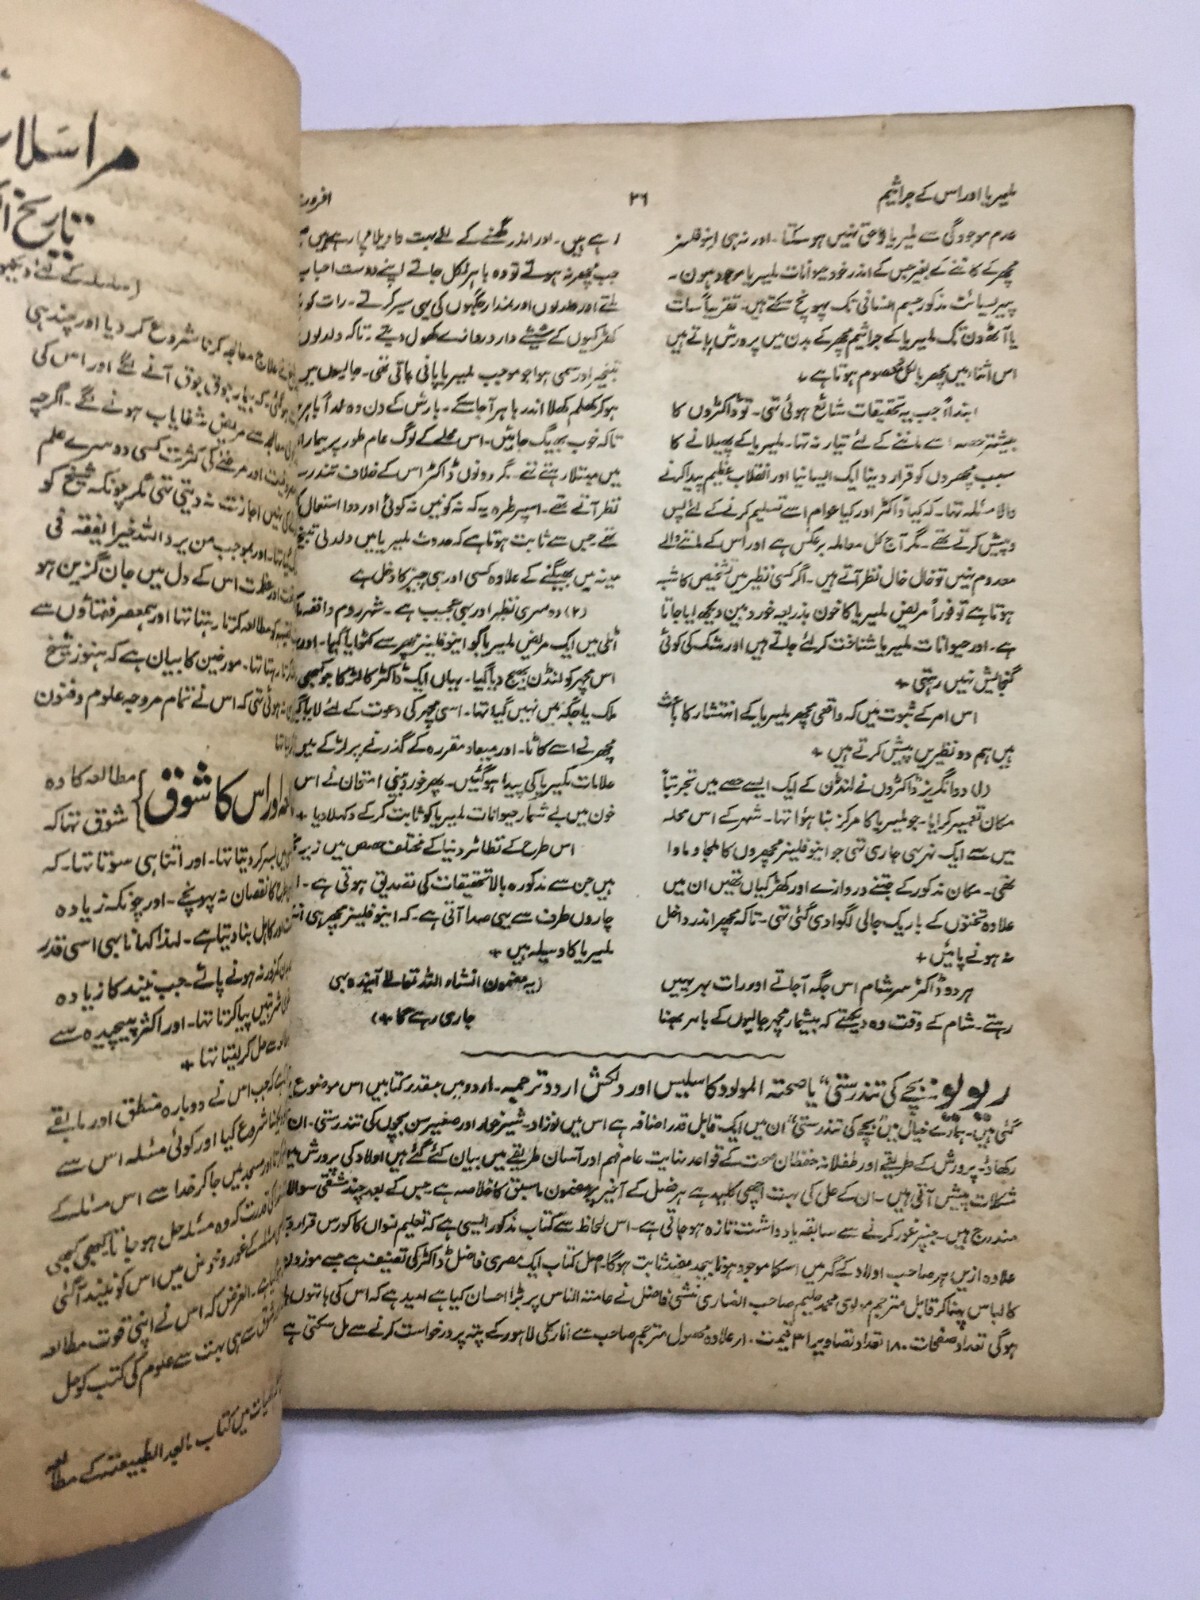 ملیریا اور اس کے جراثیم
۳۶
عدم موجودگی سے ملیریا واقع نہیں ہو سکتا۔ اور نہ ہی اینوفلینز
مچھر کے کاٹنے کے بغیر جس کے اندر خود حیوانات ملیریا موجود ہوں۔
پیریسائٹ مذکور جسم انسانی تک پہونچ سکتے ہیں۔ تقریباً سات
یا آٹھ دن تک ملیریا کے جراثیم مچھر کے بدن میں پرورش پاتے ہیں
اس اثنا میں مچھر بالکل معصوم ہوتا ہے
ابتداً جب یہ تحقیقات شائع ہوئی تھی۔ تو ڈاکٹروں کا
بیشتر حصہ اسے ماننے کے لئے تیار نہ تھا۔ ملیریا کے پھیلانے کا
سبب مچھروں کو قرار دینا ایک ایسا نیا اور انقلاب عظیم پیدا کرنے
والا مسئلہ تھا۔ کہ کیا ڈاکٹر اور کیا عوام اسے تسلیم کرنے کے لئے پس
و پیش کرتے تھے۔ مگر آج کل معاملہ برعکس ہے اور اس کے ماننے والے
معدوم نہیں تو خال خال نظر آتے ہیں۔ اگر کسی نظیر میں تشخیص کا شبہ
ہوتا ہے تو فوراً مریض ملیریا کا خون بذریعہ خوردبین دیکھ لیا جاتا
ہے۔ اور حیوانات ملیریا شناخت کر لئے جاتے ہیں اور شک کی کوئی
گنجائیش نہیں رہتی +
اس امر کے ثبوت میں کہ واقعی مچھر ملیریا کے انتشار کا باعث
ہیں ہم دو نظریں پیش کرتے ہیں +
(۱) دو انگریز ڈاکٹروں نے لنڈن کے ایک ایسے حصے میں تجربتاً
مکان تعمیر کرایا۔ جو ملیریا کا مرکز بنا ہوا تھا۔ شہر کے اس محلہ
میں سے ایک نہر بھی جاری تھی جو اینوفلینز مچھروں کا ملجا و ماوا
تھی۔ مکان مذکور کے جتنے دروازے اور کھڑکیاں تھیں ان میں
علاوہ تختوں کے باریک جالی لگوا دی گئی تھی۔ تاکہ مچھر اندر داخل
نہ ہونے پائیں +
ہر دو ڈاکٹر سر شام اس جگہ آ جاتے اور رات بھر یہیں
رہتے۔ شام کے وقت وہ دیکھتے کہ بیشمار مچھر جالیوں کے باہر بھنا
رہے ہیں۔ اور اندر گھسنے کے لئے بہت واویلا مچا رہے ہیں
جب مچھر نہ ہوتے تو وہ باہر نکل جاتے اپنے دوست احباب
ملتے اور دلدلوں اور نمدار جگہوں کی بھی سیر کرتے۔ رات کو
کھڑکیوں کے شیشے دار دروازے کھول دیتے۔ تاکہ دلدلوں
اور سمی ہوا جو موجب ملیریا پائی جاتی تھی۔ جالیوں میں
ہو کر کھلم کھلا اندر باہر آ جا سکے۔ بارش کے دن وہ عمداً باہر
تاکہ خوب بھیگ جائیں۔ اس محلے کے لوگ عام طور پر بیمار
میں مبتلا رہتے تھے۔ مگر دونوں ڈاکٹر اس کے خلاف تندرست
نظر آتے تھے۔ اسپر طرہ یہ کہ نہ کونین نہ کوئی اور دوا استعمال
تھے جس سے ثابت ہوتا ہے کہ حدوث ملیریا میں دلدلی
مینہ میں بھیگنے کے علاوہ کسی اور ہی چیز کا دخل ہے
(۲) دوسری نظیر اور بھی عجیب ہے۔ شہر روم واقعہ
اٹلی میں ایک مریض ملیریا کو اینوفلینز مچھر سے کٹوایا گیا۔ اور
اس مچھر کو لنڈن بھیج دیا گیا۔ یہاں ایک ڈاکٹر کا لڑکا جو کبھی
ملک یا جگہ میں نہیں گیا تھا۔ اسی مچھر کی دعوت کے لئے لایا گیا
مچھر نے اسے کاٹا۔ اور میعاد مقررہ کے گذرنے پر لڑکے میں
علامات ملیریا کی پیدا ہو گئیں۔ پھر خوردبینی امتحان نے اس
خون میں بے شمار حیوانات ملیریا کو ثابت کر کے دکھلا دیا +
اس طرح کے نظائر دنیا کے مختلف حصص میں
ہیں جن سے مذکورہ بالا تحقیقات کی تصدیق ہوتی ہے۔
چاروں طرف سے یہی صدا آتی ہے۔ کہ اینوفلینز مچھر ہی
ملیریا کا وسیلہ ہیں +
(یہ مضمون انشاء اللہ تعالیٰ آئندہ بھی
جاری رہے گا +)
ریویو بچے کی تندرستی یا صحتہ المولود کا سلیس اور دلکش اردو ترجمہ۔ اردو میں جسقدر کتابیں اس موضوع
گئی ہیں۔ ہمارے خیال میں بچے کی تندرستی ان میں ایک قابل قدر اضافہ ہے اس میں نوزاد۔ شیر خوار اور صغیر سن بچوں کی تندرستی۔ ان
رکھاؤ۔ پرورش کے طریقے اور طفلانہ حفظان صحت کے قواعد نہایت عام فہم اور آسان طریقے میں بیان کئے گئے ہیں اولاد کی پرورش میں
مشکلات پیش آتی ہیں۔ ان کے حل کی بہت اچھی کلید ہے ہر فصل کے آخیر پر مضمون ماسبق کا خلاصہ ہے جس کے بعد چند مشقی سوالات
مندرج ہیں۔ جنپر غور کرنے سے سابقہ یادداشت تازہ ہو جاتی ہے۔ اس لحاظ سے کتاب مذکور ایسی ہے کہ تعلیم نسواں کا کورس قرار
علاوہ ازیں ہر صاحب اولاد کے گھر میں اسکا موجود ہونا بیحد مفید ثابت ہوگا۔ اصل کتاب ایک مصری فاضل ڈاکٹر کی تصنیف ہے جسے موزوں
کا لباس پہنا کر قابل مترجم مولوی محمد حلیم صاحب انصاری منشی فاضل نے عامتہ الناس پر بڑا احسان کیا ہے امید ہے کہ اس کی ہاتھوں
ہوگی تعداد صفحات ۱۸۰ تعداد تصاویر ۳۱ قیمت ۱۰ر علاوہ محصول مترجم صاحب سے انارکلی لاہور کے پتہ پر درخواست کرنے سے مل سکتی ہے
علاج معالجہ کرنا شروع کر دیا اور چند ہی
جوق جوق آنے لگے اور اس کی
سے مریض شفایاب ہونے لگے۔ اگرچہ
اور مریضے کی کثرت کسی دوسرے علم
اجازت نہ دیتی تھی مگر چونکہ شیخ کو
اور بموجب من یرد اللہ خیراً یفقہ فی
عظمت اس کے دل میں جان گزین ہو
مطالعہ کرتا رہتا تھا اور ہمعصر فضلاؤں سے
رہتا تھا۔ مورخین کا بیان ہے کہ ہنوز شیخ
ہوئی تھی کہ اس نے تمام مروجہ علوم و فنون
اور اس کا شوق
مطالعہ کا وہ
شوق تھا کہ
بسر کر دیتا تھا۔ اور اتنا ہی سوتا تھا۔ کہ
کا نقصان نہ پہونچے۔ اور چونکہ زیادہ
اور کاہل بنا دیتا ہے۔ لہذا کھانا بھی اسی قدر
نہ ہونے پائے۔ جب نیند کا زیادہ
پیا کرتا تھا۔ اور اکثر پیچیدہ سے
حل کر لیتا تھا +
جب اس نے دوبارہ منطق اور مابقے
شروع کیا اور کوئی مسئلہ اس سے
اور مسجد میں جا کر خدا سے اس مسئلہ کے
قدرت کہ وہ مسئلہ حل ہو جاتا کبھی کبھی
کے غور و خوض میں اس کو نیند آ گئی
الغرض کہ اس نے اپنی قوت مطالعہ
سے ہی بہت سے علوم کی کتب کو حل
میں کتاب مابعد الطبیعتہ کے مطالعہ